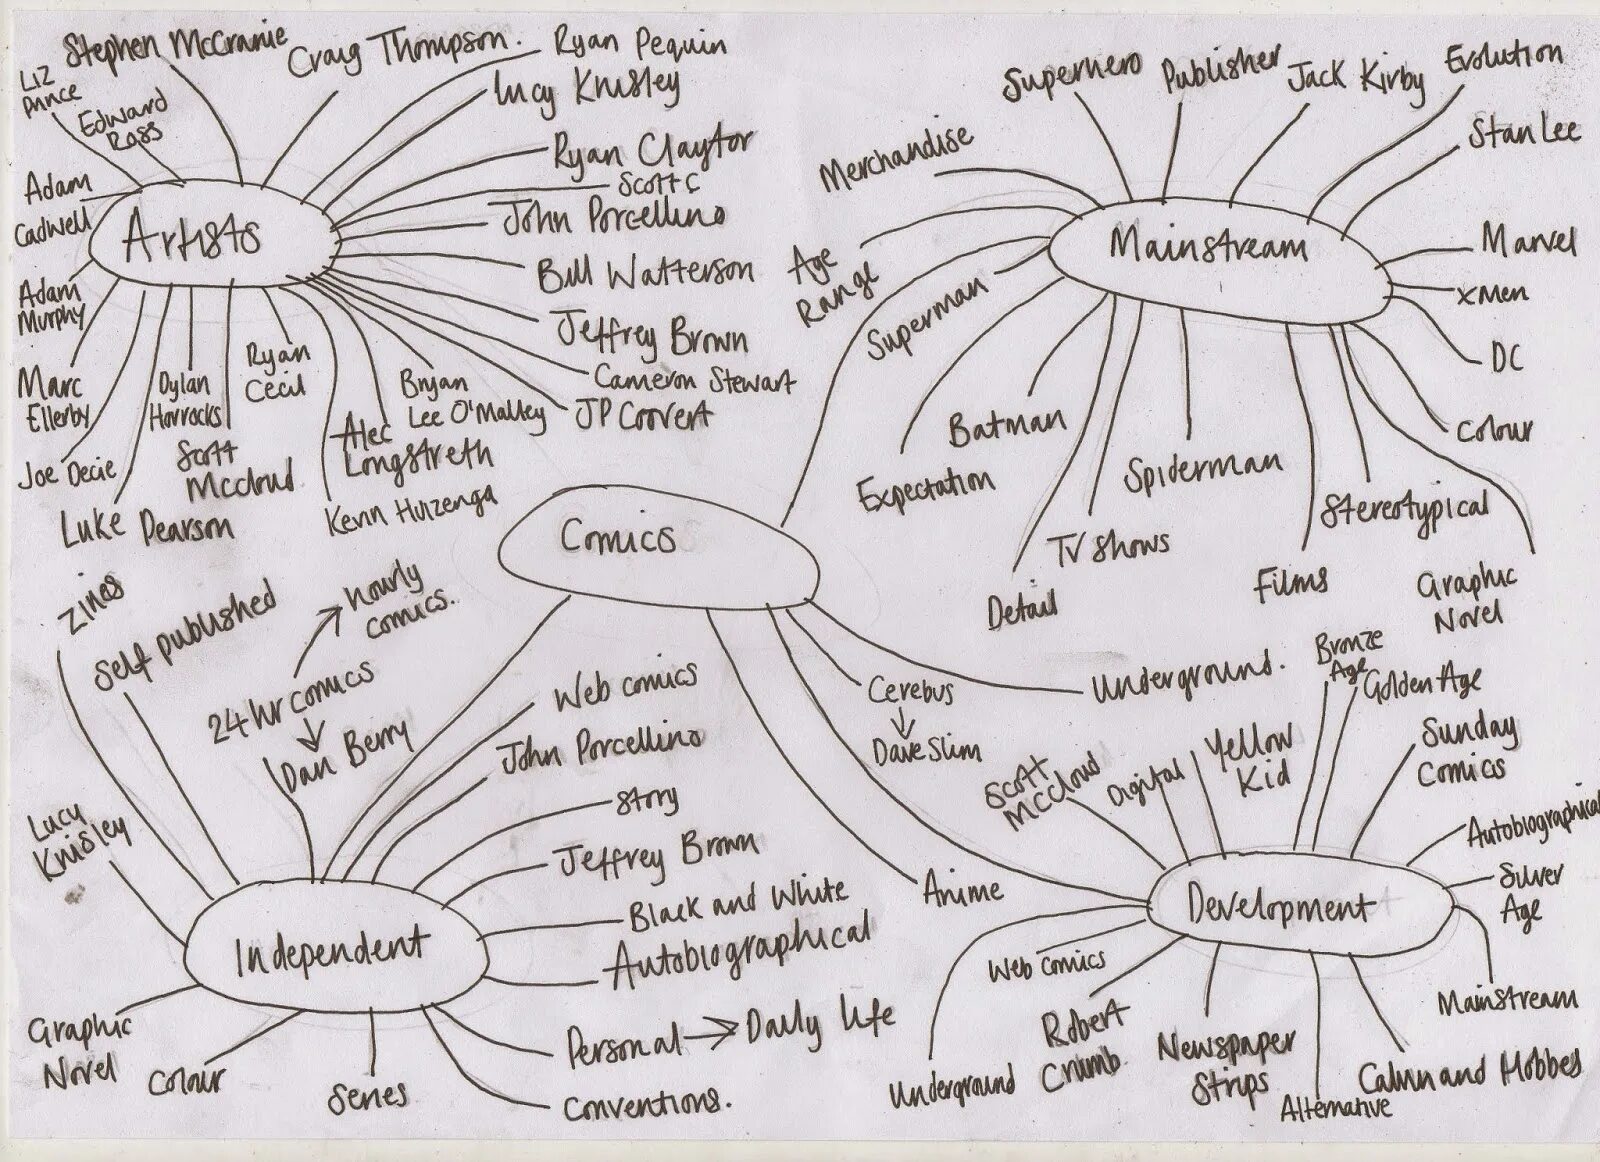 Stephen McCranie
Craig Thompson.
Ryan Pequin
Liz
Prince
Edward
Ross
Lucy Knisley
Ryan Claytor
Scott C
John Porcellino
Bill Watterson
Jeffrey Brown
Cameron Stewart
JP Coovert
Bryan
Lee O'Malley
Alec
Longstreth
Kevin Huizenga
Ryan
Cecil
Scott
Mccloud
Dylan
Horrocks
Luke Pearson
Joe Decie
Marc
Ellerby
Adam
Murphy
Adam
Cadwell
Artists
Superhero
Publisher
Jack Kirby
Evolution
Stan Lee
Marvel
X Men
DC
Colour
Graphic
Novel
Stereotypical
Films
Spiderman
TV Shows
Detail
Batman
Expectation
Superman
Age
Range
Merchandise
Mainstream
Comics
Zines
Self published
hourly
comics.
24 hr comics
Dan Berry
Web comics
John Porcellino
Story
Jeffrey Brown
Black and White
Autobiographical
Personal → Daily life
Conventions.
Series
Colour
Graphic
Novel
Lucy
Knisley
Independent
Underground.
Cerebus
Dave Sim
Anime
Scott
McCloud
Digital
Yellow
Kid
Bronze
Age
Golden Age
Sunday
Comics
Autobiographical
Silver
Age
Mainstream
Calvin and Hobbes
Alternative
Newspaper
Strips
Robert
Crumb.
Web comics
Underground
Development